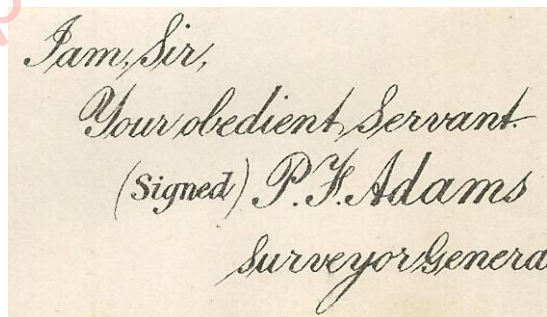 I am, Sir,
Your obedient Servant.
(Signed) P. F. Adams
Surveyor Genera